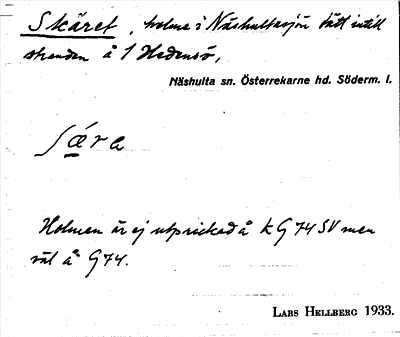 Skäret, holme i Näshultasjön tätt intill
stranden å 1 Hedensö,
Näshulta sn. Österrekarne hd. Söderm. l.
Holmen är ej utprickad å k G 74 SV men
väl å G 74.
LARS HELLBERG 1933.